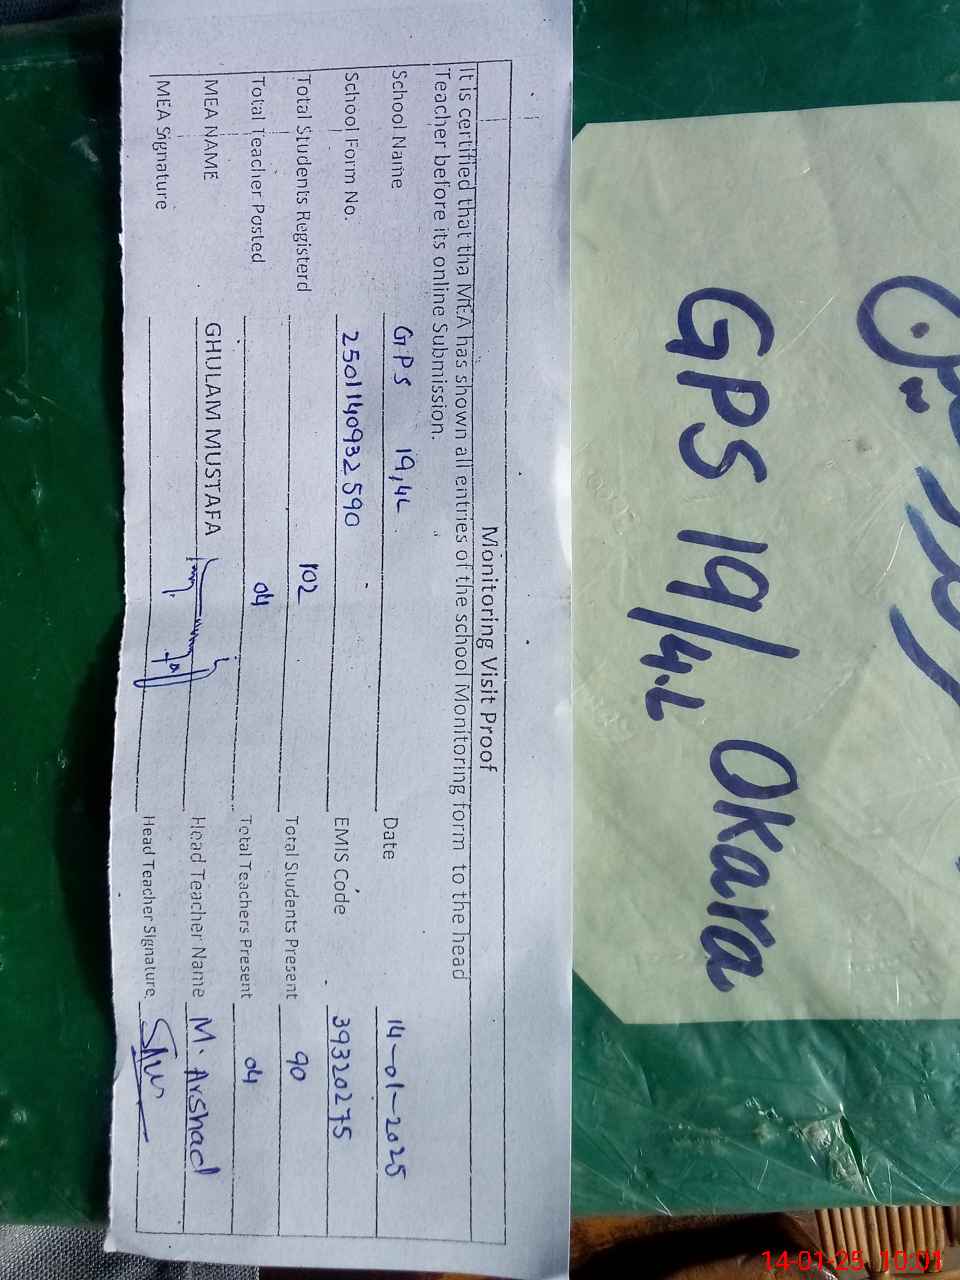 GPS 19/4.L Okara
Monitoring Visit Proof
It is certified that tha MEA has shown all entries of the school Monitoring form to the head
Teacher before its online Submission.
School Name GPS 19,4L Date 14-01-2025
School Form No. 2501140932590 EMIS Code 39320275
Total Students Registerd 102 Total Students Present 90
Total Teacher Posted 04 Total Teachers Present 04
MEA NAME GHULAM MUSTAFA Head Teacher Name M. Arshad
MEA Signature Head Teacher Signature
14-01-25 10:01